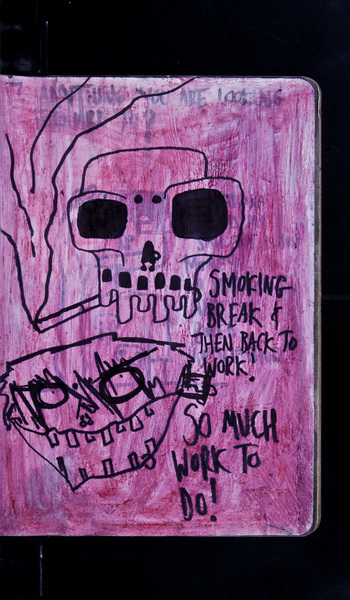 YOU ARE LOOKING
SMOKING
BREAK &
THEN BACK TO
WORK!
SO MUCH
WORK TO
DO!